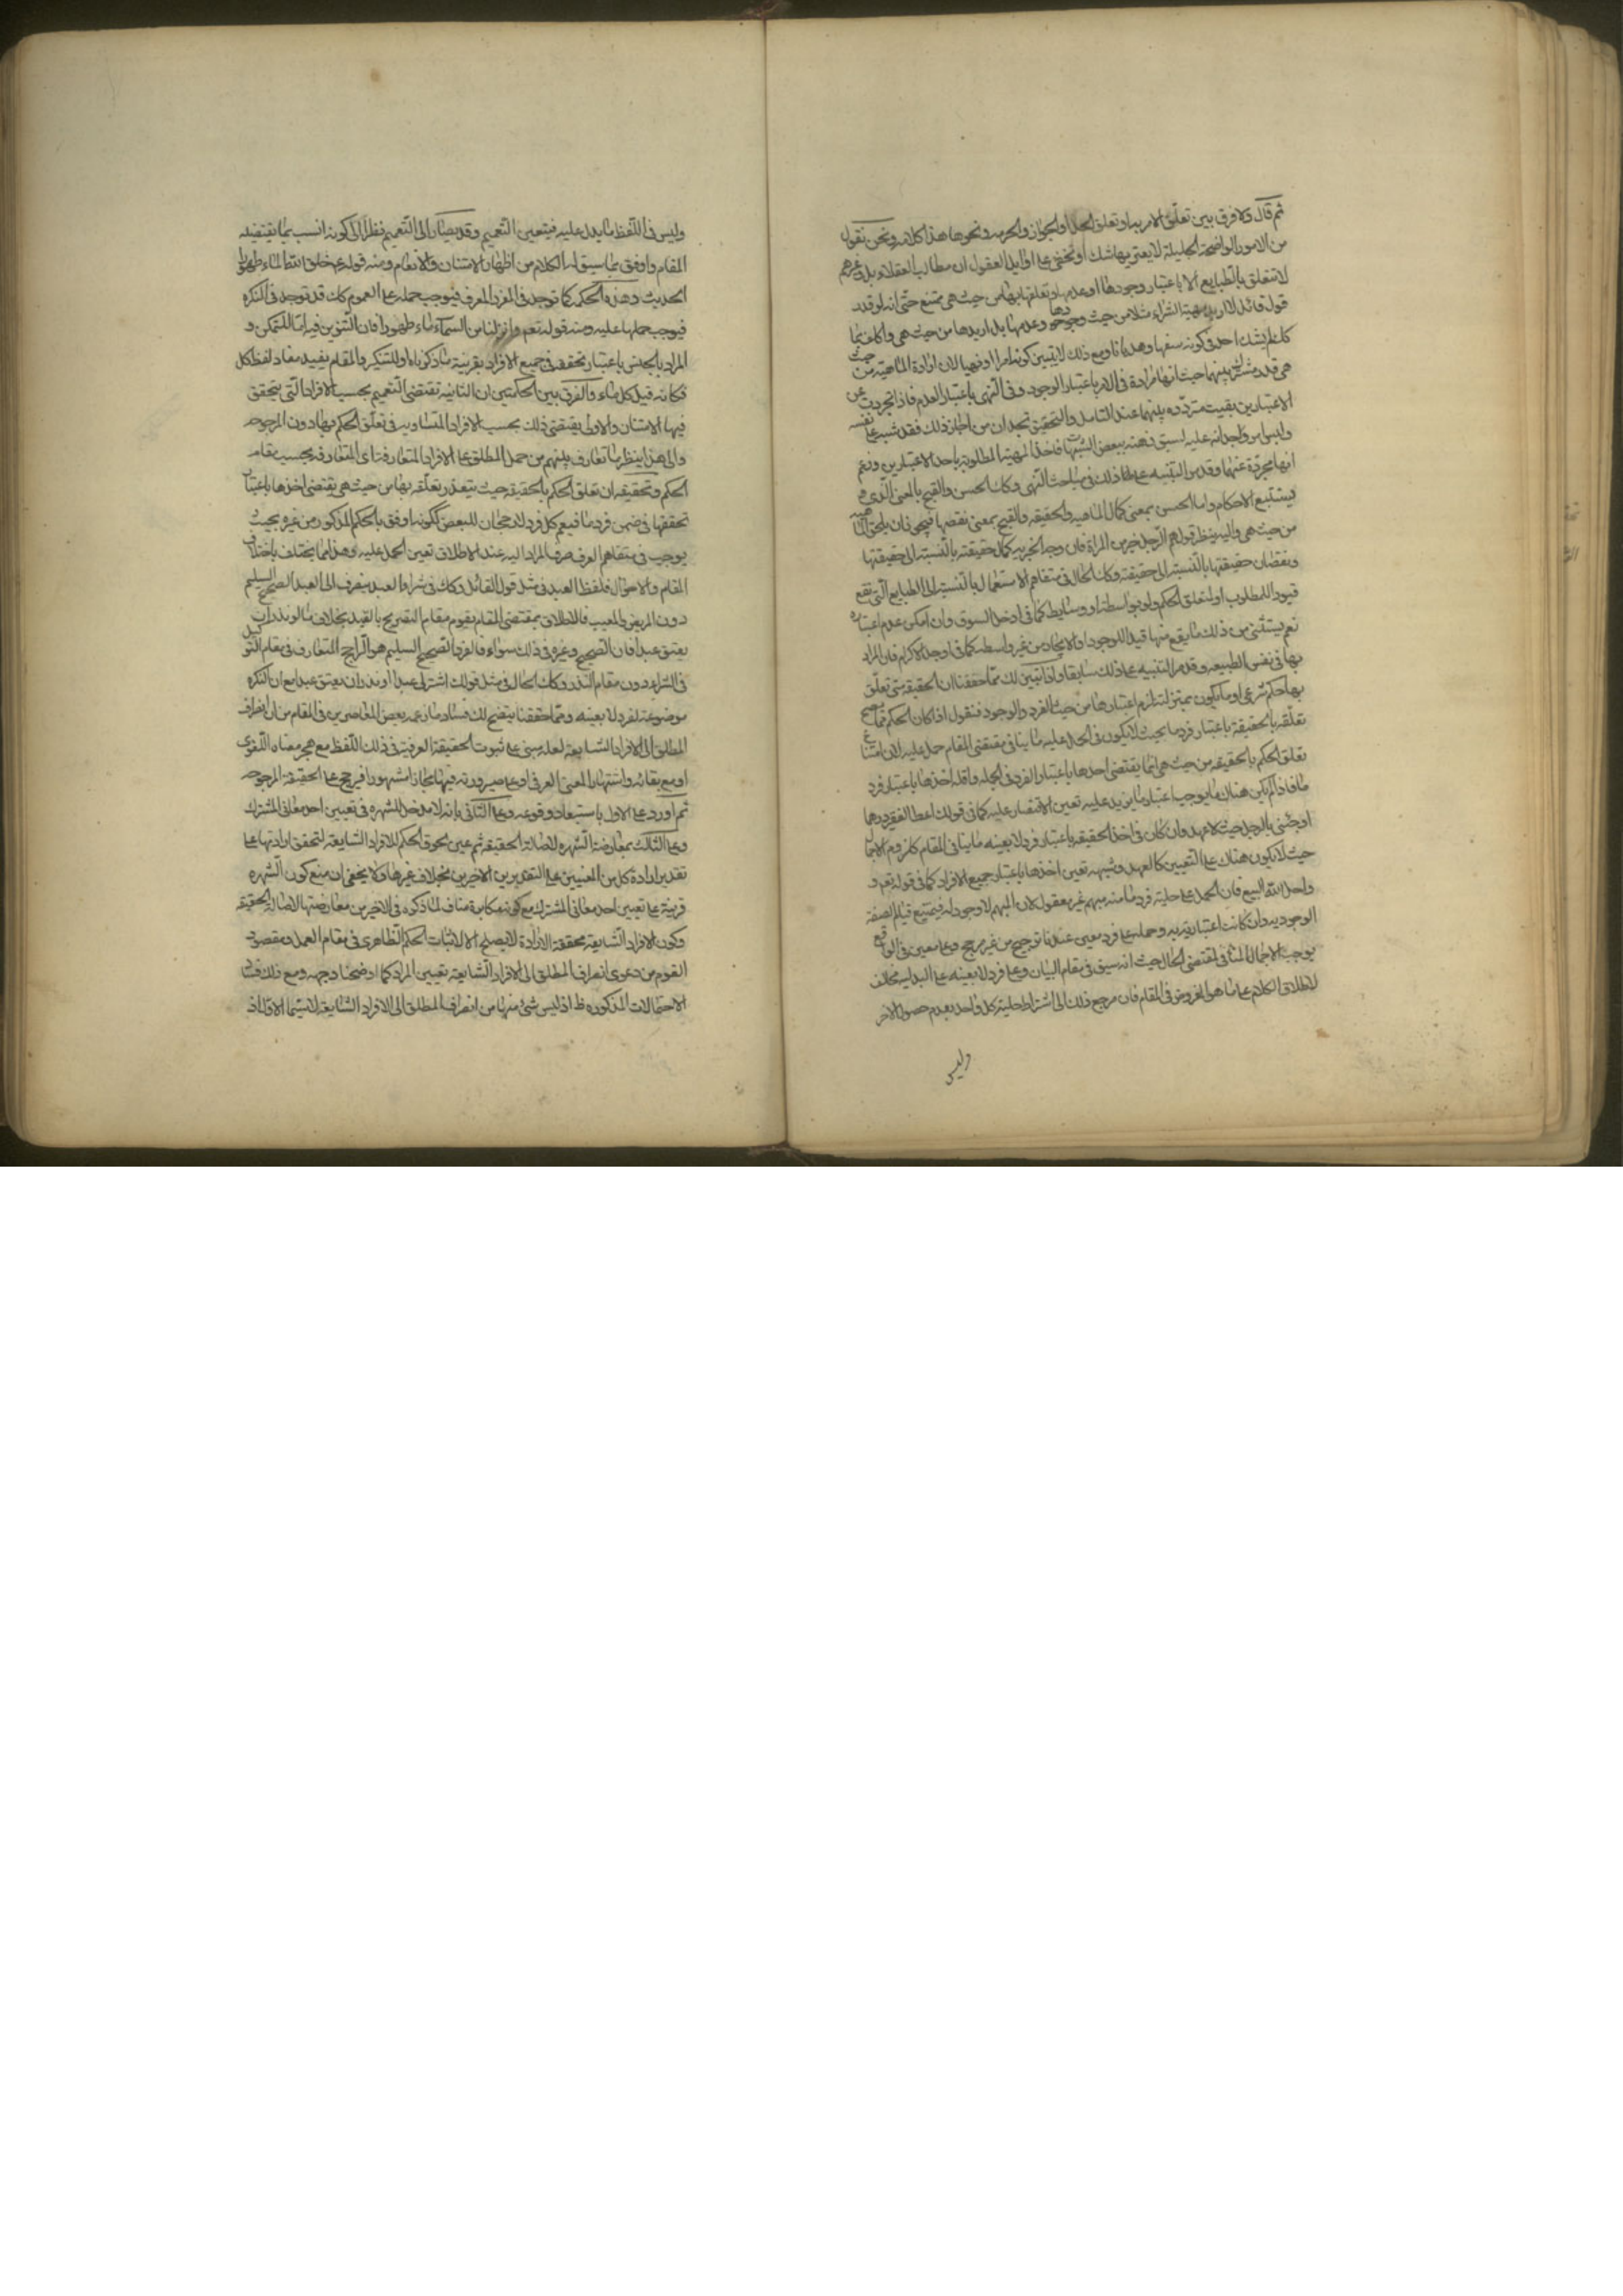 ثم قال ولا فرق بين تعلق الامر بها وتعلق الحل او الجواز والحرمه ونحوها هذا كلامه ونحن نقول
من الامور الواضحة الجليلة لا يعتريها شك او تخفى على اوايل العقول ان مطالب العقلاء بل وغيرهم
لا تتعلق بالطبايع الا باعتبار وجودها او عدمها وتعلقها بها من حيث هى ممتنع حتى انه لو قدر
قول قائل لا اريد مهية الشراء مثلا من حيث وجودها وعدمها بل اريدها من حيث هى
لم يشك احد فى كونه سفها وهذيانا ومع ذلك لا يتبين كونه امرا او نهيا لان ارادة الماهية من حيث
هى قدر مشترك بينهما حيث انها مرادة فى الامر باعتبار الوجود وفى النهى باعتبار العدم فاذا تجردت عن
الاعتبارين بقيت مترددة بينهما عند التامل والتحقيق تجد ان من اجاز ذلك فقد شبه على نفسه
والبس امر وجدانه عليه لسبق ذهنه ببعض الشبهات فاخذ المهية المطلوبة باحد الاعتبارين وزعم
انها مجردة عنهما وقد مر التنبيه على ذلك فى مباحث النهى وكك الحسن والقبح بالمعنى الذى
يستتبع الاحكام واما الحسن بمعنى كمال الماهيه والحقيقه والقبح بمعنى نقصها فيجى فان يلحق الماهيه
من حيث هى واليه ينظر قولهم الرجل خير من المراة فان وجه الخيريه كمال حقيقته بالنسبة الى حقيقتها
ونقصان حقيقتها بالنسبة الى حقيقته وكك الحال فى مقام الاستعمال بالنسبة الى الطبايع التى تقع
قيودا للمطلوب او لمتعلق الحكم ولو بواسطة او وسايط كما فى ادخل السوق وان امكن عدم اعتباره
نعم يستثنى من ذلك ما يقع منها قيدا للوجود او الايجاد من غير واسطه كما فى اوجد الاكرام فان المراد
بها فى نفس الطبيعه وقد مر التنبيه على ذلك سابقا واذ تبين لك مما حققنا ان الحقيقة متى تعلق
بها حكم شرعى او ما يكون بمنزلته لزم اعتبارها من حيث الفرد والوجود فنقول اذا كان الحكم مما يصح
تعلقه بالحقيقة باعتبار فرد ما بحيث لا يكون فى الحمل عليه ما ينافى مقتضى المقام حمل عليه لان امتناع
تعلق الحكم بالحقيقه من حيث هى انما يقتضى اخذها باعتبار الفرد فى الجمله واقله اخذها باعتبار فرد
ما فاذا لم يكن هناك ما يوجب اعتبار ما يزيد عليه تعين الاقتصار عليه كما فى قولك اعط الفقير درهما
او جئنى بالرجل حيث لا عهد وان كان فى اخذ الحقيقه باعتبار فرد لا بعينه ما ينافى المقام كلزوم الاجمال
حيث لا يكون هناك على التعيين كالعهد وشبهه تعين اخذها باعتبار جميع الافراد كما فى قوله تعم و
واحل الله البيع فان الحمل على حلية فرد ما منه مبهم غير معقول لان المبهم لا وجود له فيمتنع قيام الصفة
الوجوديه وان كانت اعتباريه به وحمله على فرد معين عندنا ترجيح من غير مرجح وعلى معين فى الواقع
يوجب الاجمال المنافى لمقتضى الحال حيث انه سيق فى مقام البيان وعلى فرد لا بعينه على البدليه مخالف
لاطلاق الكلام على ما هو المفروض فى المقام فان مرجع ذلك الى اشتراط حلية كل واحد بعدم حصول الاخر
وليس
وليس فى اللفظ ما يدل عليه فيتعين التعميم وقد يصار الى التعميم نظرا الى كونه انسب بما يقتضيه
المقام واوفق بما سيق له الكلام من اظهار الامتنان والانعام ومنه قوله ع خلق الله الماء طهورا
الحديث وهذه الحكمة كما توجد فى المفرد المعرف فيوجب حمله على العموم كك قد توجد فى النكره
فيوجب حملها عليه ومنه قوله تعم وانزلنا من السماء ماء طهورا فان التنوين فيه اما للتمكن و
المراد الجنس باعتبار تحققه فى جميع الافراد بقرينة ما ذكرناه او للتنكير والمقام يفيد مفاد لفظ كل
فكانه قيل كل ماء والفرق بين الحكمتين ان الثانية تقتضى التعميم بحسب الافراد التى يتحقق
فيها الامتنان والاولى يقتضى ذلك بحسب الافراد المتساويه فى تعلق الحكم بها دون المرجوحه
والى هذا ينظر ما تعارف بينهم من حمل المطلق على الافراد المتعارفة اى المتعارفه بحسب مقام
الحكم وتحقيقه ان تعلق الحكم بالحقيقه حيث يتعذر تعلقه بها من حيث هى يقتضى اخذها باعتبار
تحققها فى ضمن فرد ما فيعم كل فرد لا رجحان للبعض ككونه اوفق بالحكم المذكور من غيره بحيث
يوجب فى متفاهم العرف صرف المراد اليه عند الاطلاق تعين الحمل عليه وهذا مما يختلف باختلاف
المقام والاحوال فلفظ العبد فى مثل قول القائل وكلتك فى شراء العبد ينصرف الى العبد الصحيح السليم
دون المريض والمعيب فالاطلاق بمقتضى المقام يقوم مقام التصريح بالقيد بخلاف ما لو نذر ان
يعتق عبدا فان الصحيح وغيره فى ذلك سواء فالفرد الصحيح السليم هو الراجح المتعارف فى مقام التوكيل
فى الشراء دون مقام النذر وكك الحال فى مثل قولك اشتر لى عبدا او نذر ان يعتق عبدا مع ان النكره
موضوعة لفرد لا بعينه ومما حققنا يتضح لك فساد ما زعمه بعض المعاصرين فى المقام من ان انصراف
المطلق الى الافراد الشايعة لعله مبنى على ثبوت الحقيقة العرفية فى ذلك اللفظ مع هجر معناه اللغوى
او مع بقائه واشتهار المعنى العرفى او على صيرورته فيها مجازا مشهورا فيرجح على الحقيقة المرجوحه
ثم اورد على الاول باستبعاد وقوعه وعلى الثانى بانه لا مدخل للشهره فى تعيين احد معانى المشترك
وعلى الثالث بمعارضة الشهره لاصالة الحقيقة ثم عين لحوق الحكم للافراد الشايعة لتحقق ارادتها على
تقدير ارادة كل من المعنيين على التقديرين الاخيرين بخلاف غيرها ولا يخفى ان منع كون الشهره
قرينة على تعيين احد معانى المشترك مع كونه مكابرة مناف لما ذكره فى الاخير من معارضتها لاصالة الحقيقة
وكون الافراد الشايعة محققة الارادة لا يصلح الا لاثبات الحكم الظاهرى فى مقام العمل ومقصود
القوم من دعوى انصراف المطلق الى الافراد الشايعة تعيين المراد كما اوضحنا وجهه ومع ذلك فساد
الاحتمالات المذكوره ظ اذ ليس شئ منها من انصراف المطلق الى الافراد الشايعة لا سيما الاول اذ